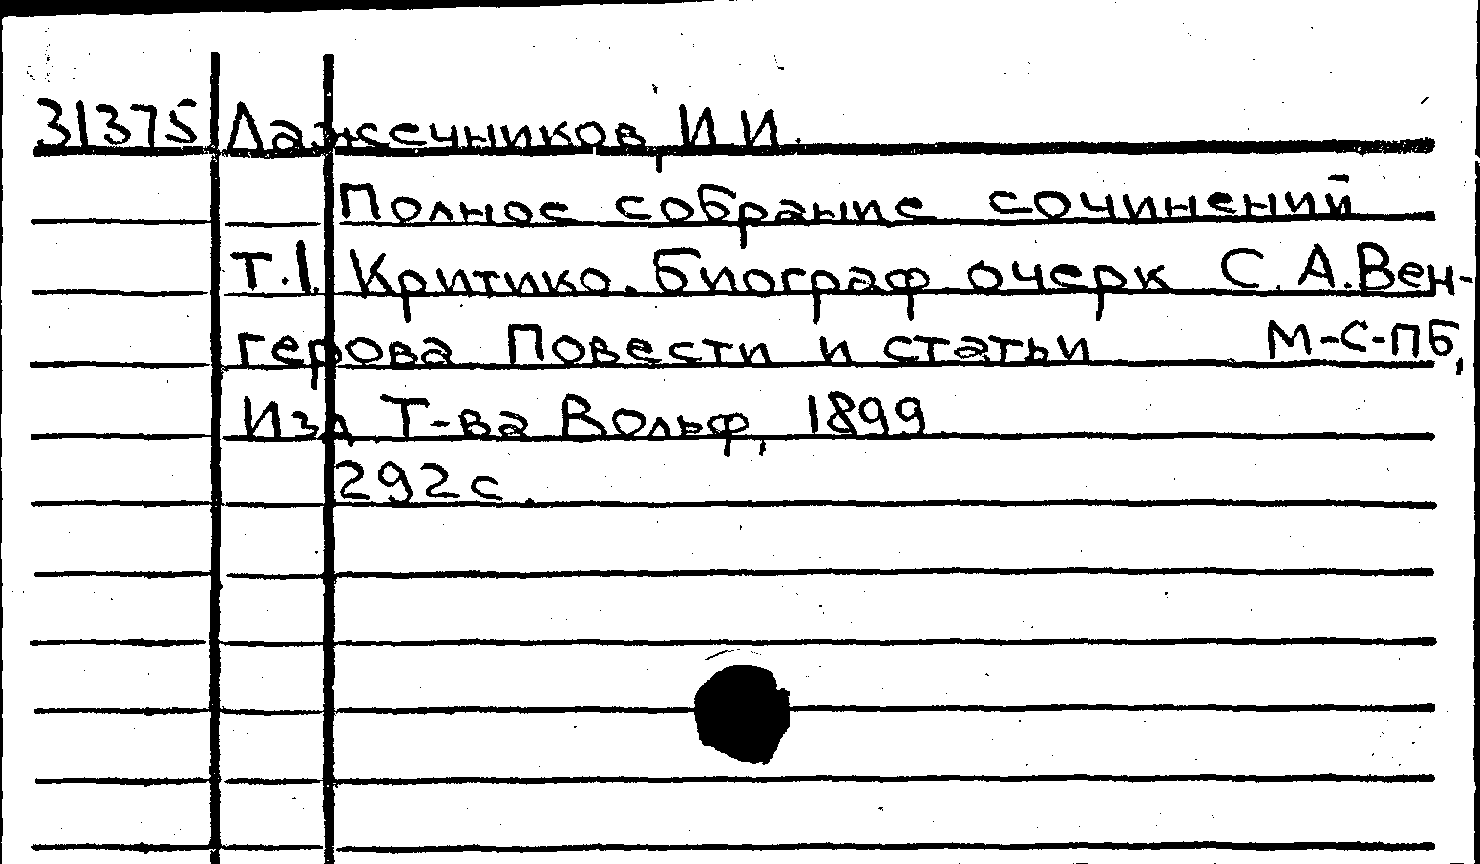 31375 Лажечников, И.И.
Полное собрание сочинений
Т.1. Критико-биограф очерк С.А.Вен-
герова Повести и статьи М-С-ПБ,
Изд Т-ва Вольф, 1899
292с.